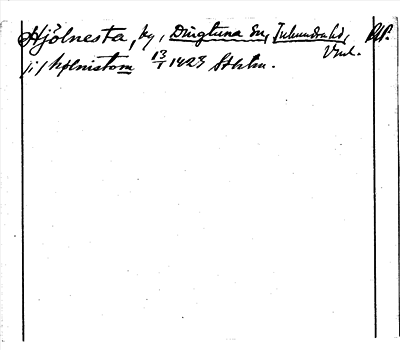 Hjölnesta, by, Dingtuna sn, Tuhundra hd, Vml.
(i) hølnistom 13/1 1423 Sthlm.